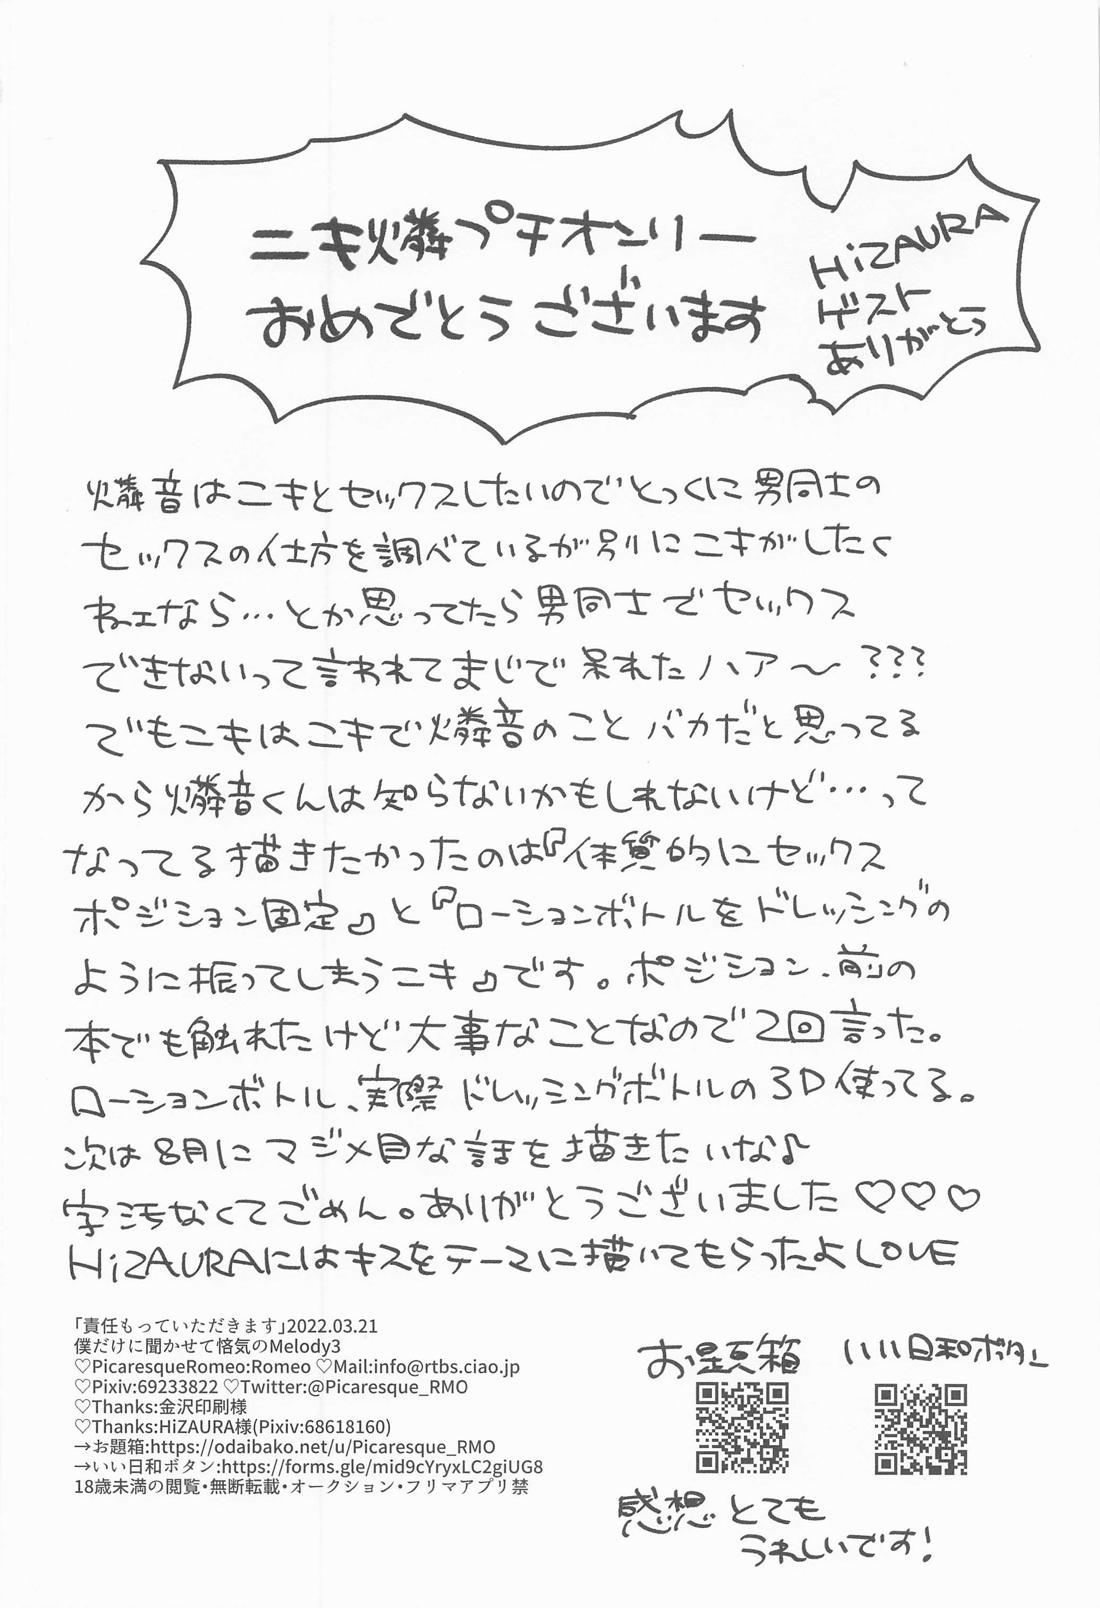 ニキ燐プチオンリー
おめでとうございます
HiZAURA
ゲスト
ありがとう
燐音はニキとセックスしたいのでとっくに男同士の
セックスの仕方を調べているが別にニキがしたく
ねェなら…とか思ってたら男同士でセックス
できないって言われてまじで呆れたハア〜???
でもニキはニキで燐音のことバカだと思ってる
から燐音くんは知らないかもしれないけど…って
なってる描きたかったのは『体質的にセックス
ポジション固定』と『ローションボトルをドレッシングの
ように振ってしまうニキ』です。ポジション、前の
本でも触れたけど大事なことなので2回言った。
ローションボトル、実際ドレッシングボトルの3D使ってる。
次は8月にマジメ目な話を描きたいな♪
字汚なくてごめん。ありがとうございました♡♡♡
HiZAURAにはキスをテーマに描いてもらったよLOVE
「責任もっていただきます」2022.03.21
僕だけに聞かせて悋気のMelody3
♡PicaresqueRomeo:Romeo ♡Mail:info@rtbs.ciao.jp
♡Pixiv:69233822 ♡Twitter:@Picaresque_RMO
♡Thanks:金沢印刷様
♡Thanks:HiZAURA様(Pixiv:68618160)
→お題箱:https://odaibako.net/u/Picaresque_RMO
→いい日和ボタン:https://forms.gle/mid9cYryxLC2giUG8
18歳未満の閲覧・無断転載・オークション・フリマアプリ禁
お題箱
いい日和ボタン
感想とても
うれしいです!